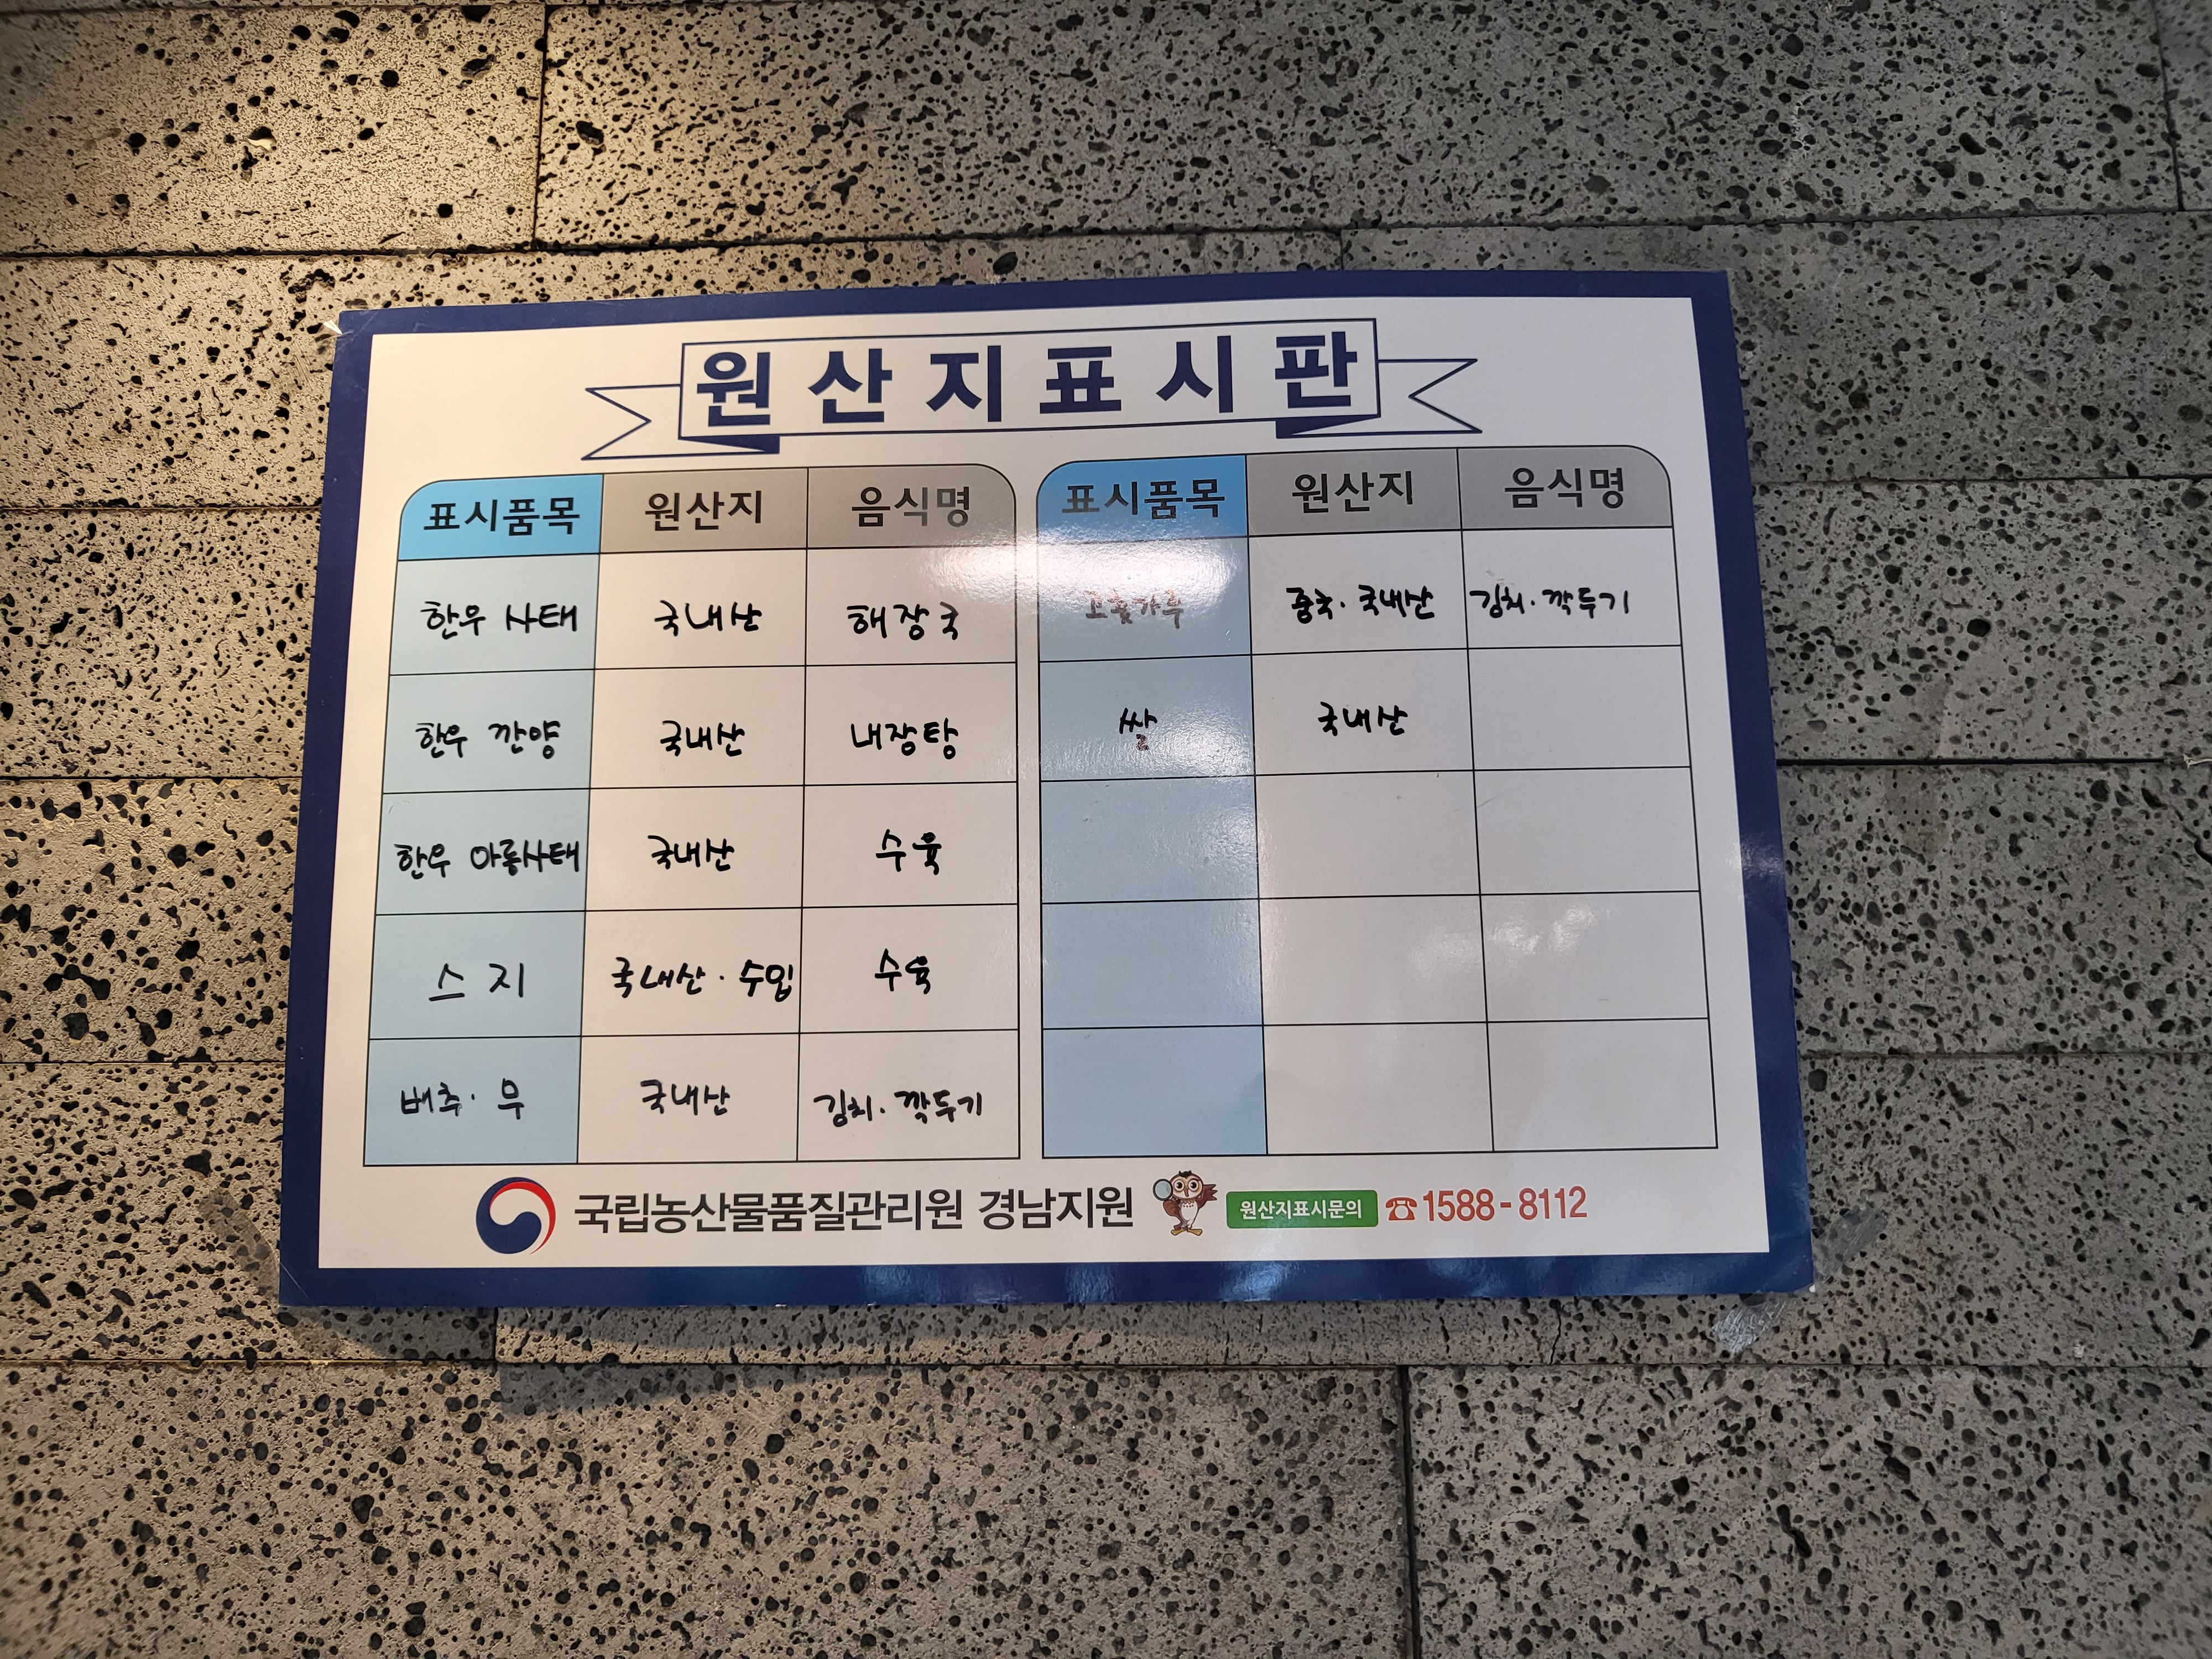 원산지표시판
표시품목 원산지 음식명
한우 사태 국내산 해장국
한우 깐양 국내산 내장탕
한우 아롱사태 국내산 수육
스지 국내산·수입 수육
배추·무 국내산 김치·깍두기
표시품목 원산지 음식명
고춧가루 중국·국내산 김치·깍두기
쌀 국내산
국립농산물품질관리원 경남지원 원산지표시문의 ☎1588-8112